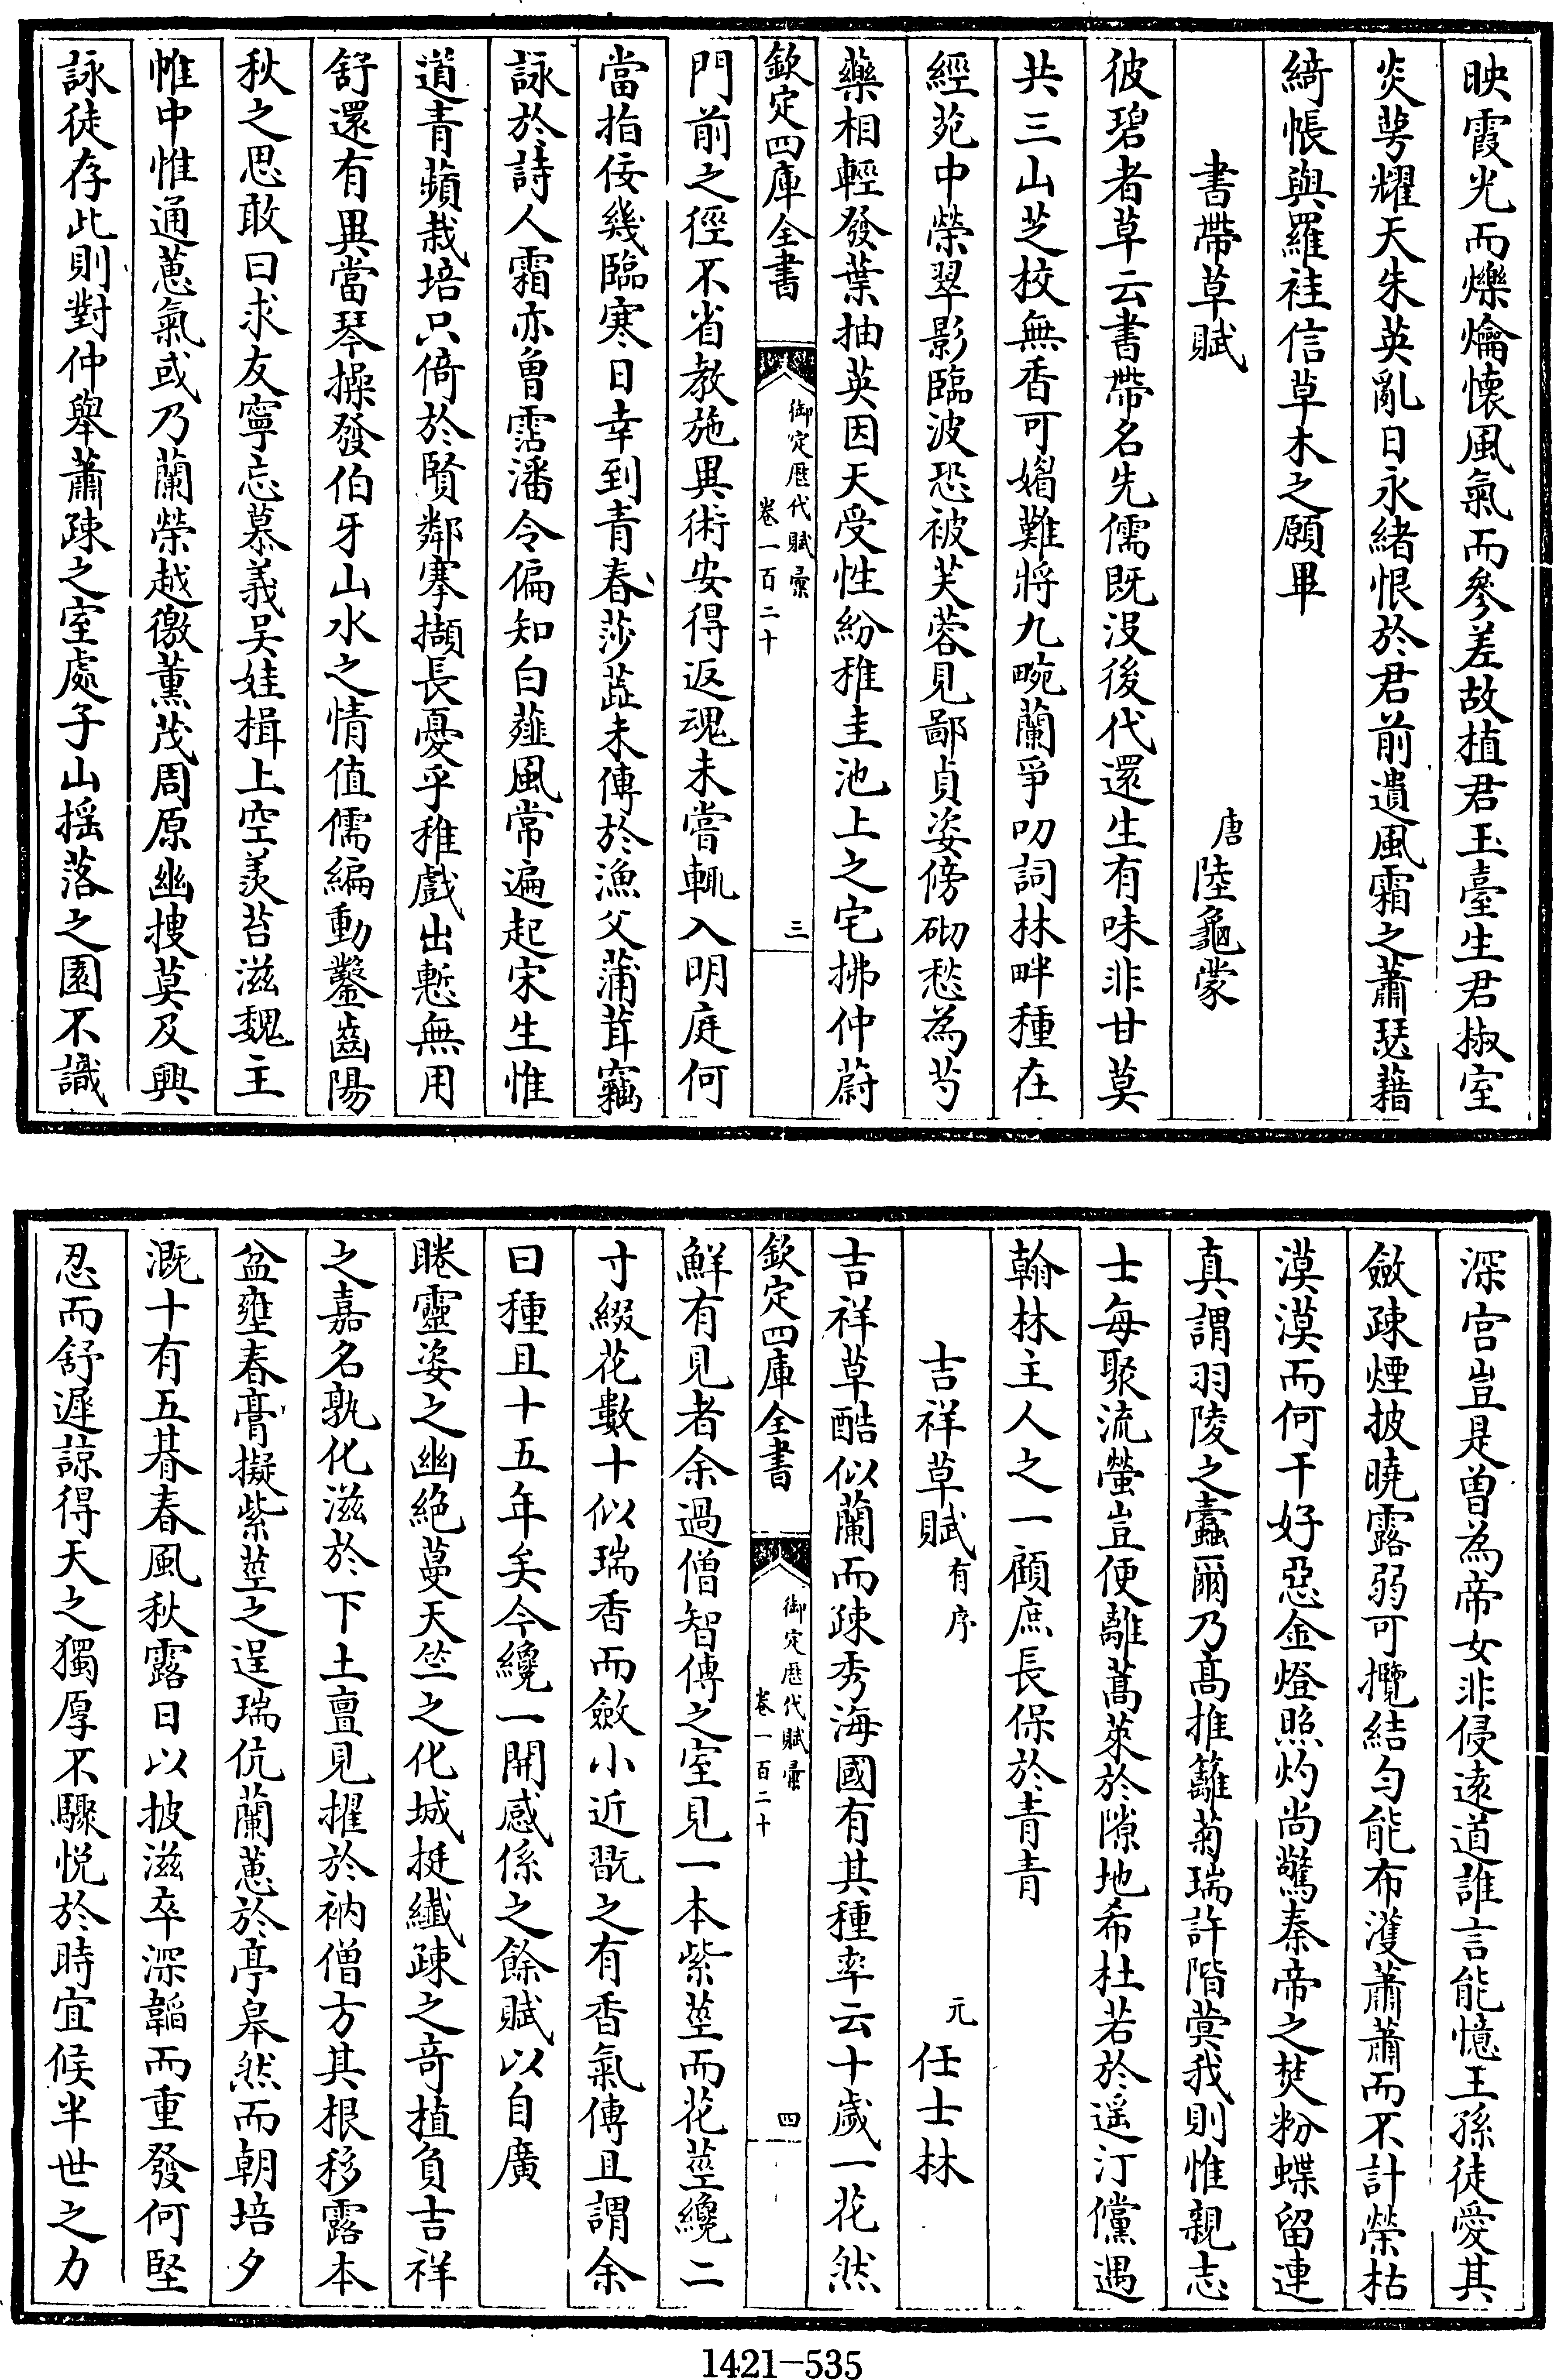 映霞光而爍爚懷風氣而參差故植君玉臺生君椒室
炎萼耀天朱英亂日永緒恨於君前遺風霜之蕭瑟藉
綺帳與羅袿信草木之願畢
書帶草賦 唐陸龜蒙
彼碧者草云書帶名先儒既沒後代還生有味非甘莫
共三山芝校無香可媚難將九畹蘭爭叨詞林畔種在
經苑中榮翠影臨波恐被芙蓉見鄙貞姿傍砌愁為芍
藥相輕發葉抽英因天受性紛稚圭池上之宅拂仲蔚
欽定四庫全書 御定歴代賦彙 卷一百二十 三
門前之徑不省教施異術安得返魂未嘗輒入明庭何
當指佞幾臨寒日幸到青春莎蘂未傳於漁父蒲茸竊
詠於詩人霜亦曾霑潘令偏知白薤風常遍起宋生惟
道青蘋栽培只倚於賢鄰搴擷長憂乎稚戲出慙無用
舒還有異當琴操發伯牙山水之情值儒編動鑿齒陽
秋之思敢曰求友寧忘慕義吳娃楫上空羨苔滋魏王
帷中惟通蕙氣或乃蘭榮越徼薰茂周原幽搜莫及興
詠徒存此則對仲舉蕭疎之室處子山揺落之園不識
深宫豈是曽為帝女非侵逺道誰言能憶王孫徒愛其
斂疎煙披曉露弱可攬結勻能布濩蕭蕭而不計榮枯
漠漠而何干好惡金燈照灼尚驚秦帝之焚粉蝶留連
真謂羽陵之蠧爾乃髙推籬菊瑞許階蓂我則惟親志
士每聚流螢豈便離蒿萊於隙地希杜若於遥汀儻遇
翰林主人之一顧庶長保於青青
吉祥草賦有序 元任士林
吉祥草酷似蘭而疎秀海國有其種率云十歲一花然
欽定四庫全書 御定歴代賦彙 卷一百二十 四
鮮有見者余過僧智傅之室見一本紫莖而花莖纔二
寸綴花數十似瑞香而斂小近翫之有香氣傅且謂余
曰種且十五年矣今纔一開感係之餘賦以自廣
睠靈姿之幽絕蔓天竺之化城挺纖疎之竒植負吉祥
之嘉名孰化滋於下土亶見擢於衲僧方其根移露本
盆壅春膏擬紫莖之逞瑞伉蘭蕙於亭皋然而朝培夕
溉十有五朞春風秋露日以披滋卒深韜而重發何堅
忍而舒遲諒得天之獨厚不驟悅於時宜候半世之力
1421—535